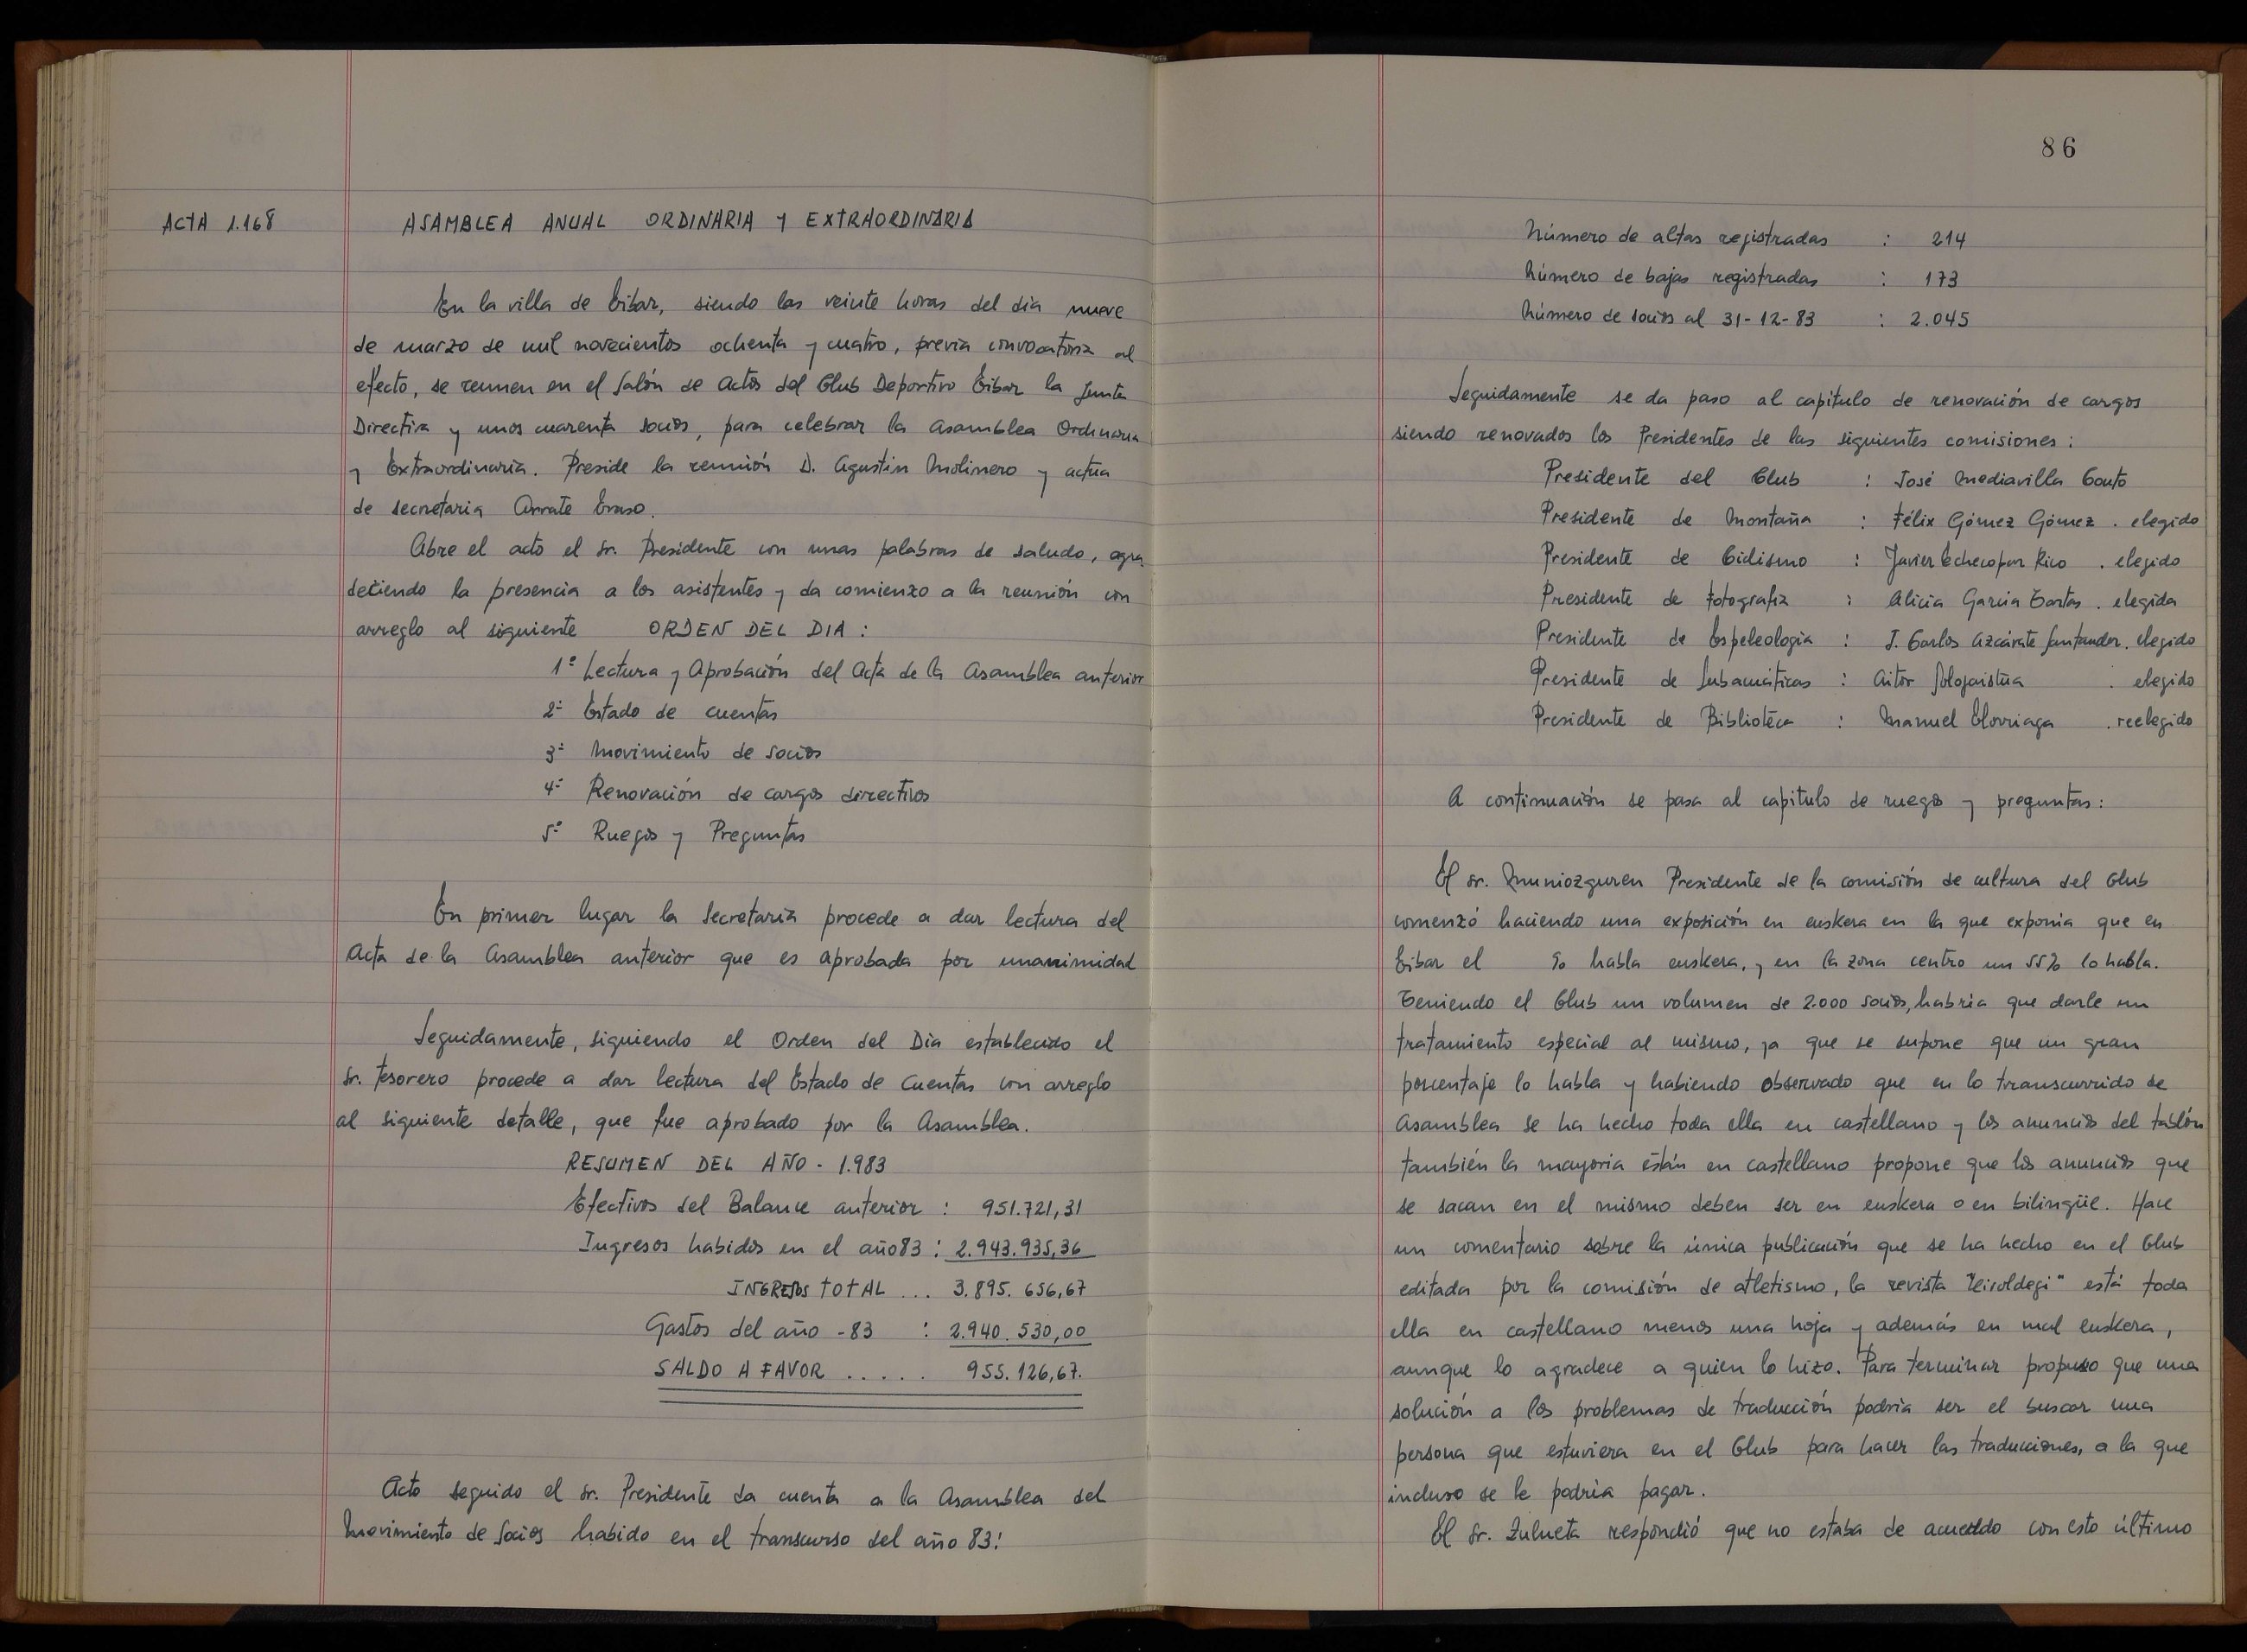 ACTA 1.168
ASAMBLEA ANUAL ORDINARIA y EXTRAORDINARIA
En la villa de Eibar, siendo las veinte horas del dia nueve
de marzo de mil novecientos ochenta y cuatro, previa convocatoria al
efecto, se reunen en el Salón de Actos del Club Deportivo Eibar la Junta
Directiva y unos cuarenta socios, para celebrar la Asamblea Ordinaria
y Extraordinaria. Preside la reunión D. Agustin Molinero y actúa
de secretaria Arrate Eraso.
Abre el acto el Sr. Presidente con unas palabras de saludo, agra
deciendo la presencia a los asistentes y da comienzo a la reunión con
arreglo al siguiente ORDEN DEL DIA:
1º Lectura y Aprobación del Acta de la Asamblea anterior
2º Estado de cuentas
3º Movimiento de Socios
4º Renovación de cargos directivos
5º Ruegos y Preguntas
En primer lugar la Secretaria procede a dar lectura del
Acta de la Asamblea anterior que es aprobada por unanimidad
Seguidamente, siguiendo el Orden del Dia establecido el
Sr. Tesorero procede a dar lectura del Estado de Cuentas con arreglo
al siguiente detalle, que fue aprobado por la Asamblea.
RESUMEN DEL AÑO - 1.983
Efectivos del Balance anterior : 951.721,31
Ingresos habidos en el año 83 : 2.943.935,36
INGRESOS TOTAL ... 3.895.656,67
Gastos del año -83 : 2.940.530,00
SALDO A FAVOR ..... 955.126,67.
Acto seguido el Sr. Presidente da cuenta a la Asamblea del
Movimiento de Socios habido en el transcurso del año 83:
86
Número de altas registradas : 214
Número de bajas registradas : 173
Número de socios al 31-12-83 : 2.045
Seguidamente se da paso al capitulo de renovación de cargos
siendo renovados los Presidentes de las siguientes comisiones:
Presidente del Club : José Mediavilla Couto
Presidente de Montaña : Félix Gómez Gómez . elegido
Presidente de Ciclismo : Javier Echecopar Rico . elegido
Presidente de Fotografia : Alicia Garcia Tartas . elegida
Presidente de Espeleologia : J. Carlos Azcárate Santander. elegido
Presidente de Subacuáticas : Aitor . elegido
Presidente de Biblioteca : Manuel Elorriaga . reelegido
A continuación se pasa al capitulo de ruegos y preguntas:
El Sr. Muniozguren Presidente de la comisión de cultura del Club
comenzó haciendo una exposición en euskera en la que exponia que en
Eibar el % habla euskera, y en la zona centro un 55% lo habla.
Teniendo el Club un volumen de 2.000 socios, habria que darle un
tratamiento especial al mismo, ya que se supone que un gran
porcentaje lo habla y habiendo observado que en lo transcurrido de
Asamblea se ha hecho toda ella en castellano y los anuncios del tablón
también la mayoria están en castellano propone que los anuncios que
se sacan en el mismo deben ser en euskera o en bilingüe. Hace
un comentario sobre la única publicación que se ha hecho en el Club
editada por la comisión de atletismo, la revista "Kiroldegi" está toda
ella en castellano menos una hoja y además en mal euskera,
aunque lo agradece a quien lo hizo. Para terminar propuso que una
solución a los problemas de traducción podria ser el buscar una
persona que estuviera en el Club para hacer las traducciones, a la que
incluso se le podria pagar.
El Sr. Zulueta respondió que no estaba de acuerdo con esto último